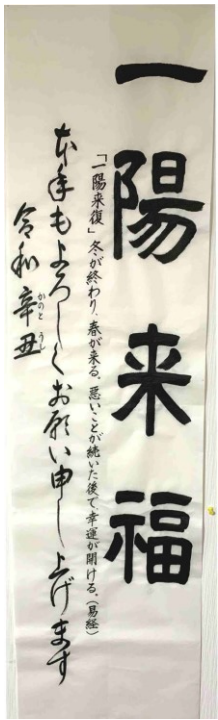 一陽来福
「一陽来復」冬が終わり、春が来る。悪いことが続いた後で幸運が開ける。(易経)
本年もよろしくお願い申し上げます
令和辛丑
かのと うし